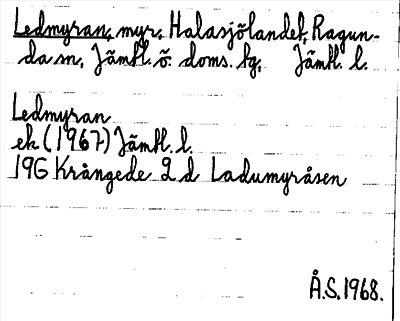 Ledmyran, myr, Halasjölandet, Ragun-
da sn, Jämtl. ö. doms. sg, Jämtl. l.
Ledmyran
ek (1967) Jämtl. l.
19G Krångede 2 d Ladumyråsen
Å.S. 1968.